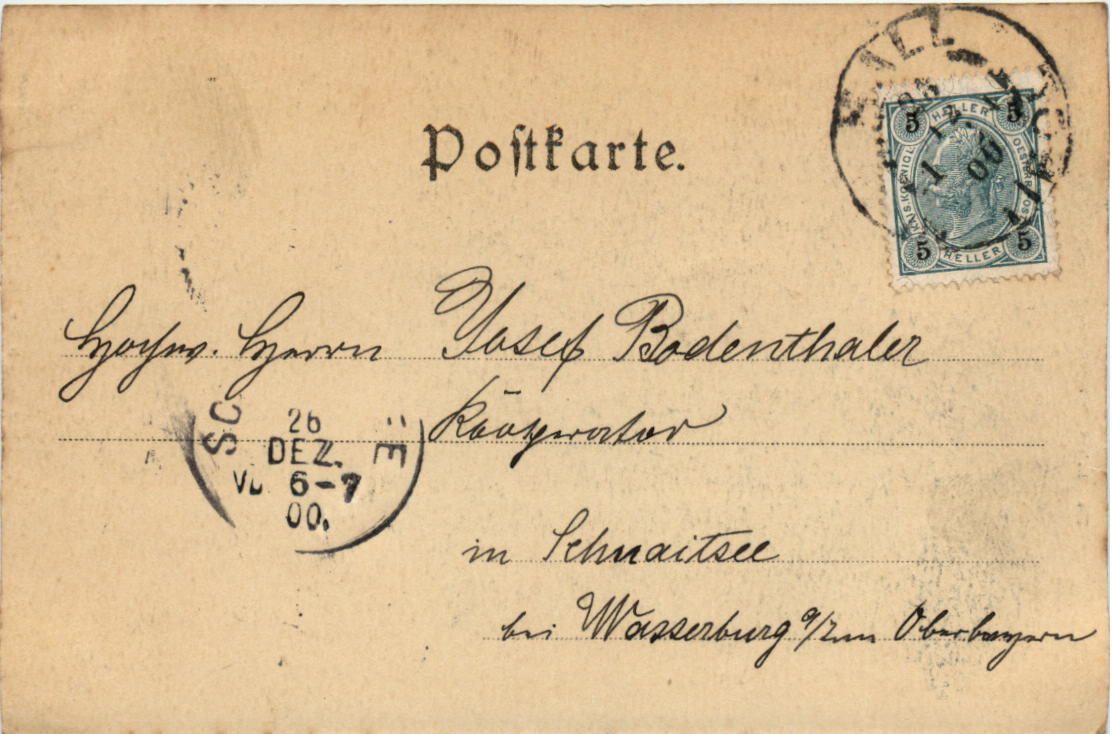 HALL
25
12.
1 00
5 HELLER 5
KAIS. KOENIGL. OESTERR.
5 HELLER 5
Postkarte.
Hochw. Herrn Josef Bodenthaler
Kooperator
26
DEZ.
6-7
00.
in Schnaitsee
bei Wasserburg a/Inn Oberbayern